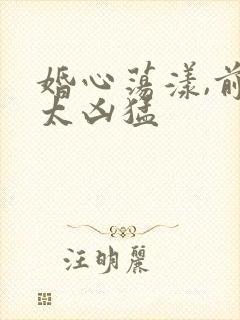 婚心荡漾,前
太凶猛
汪明丽